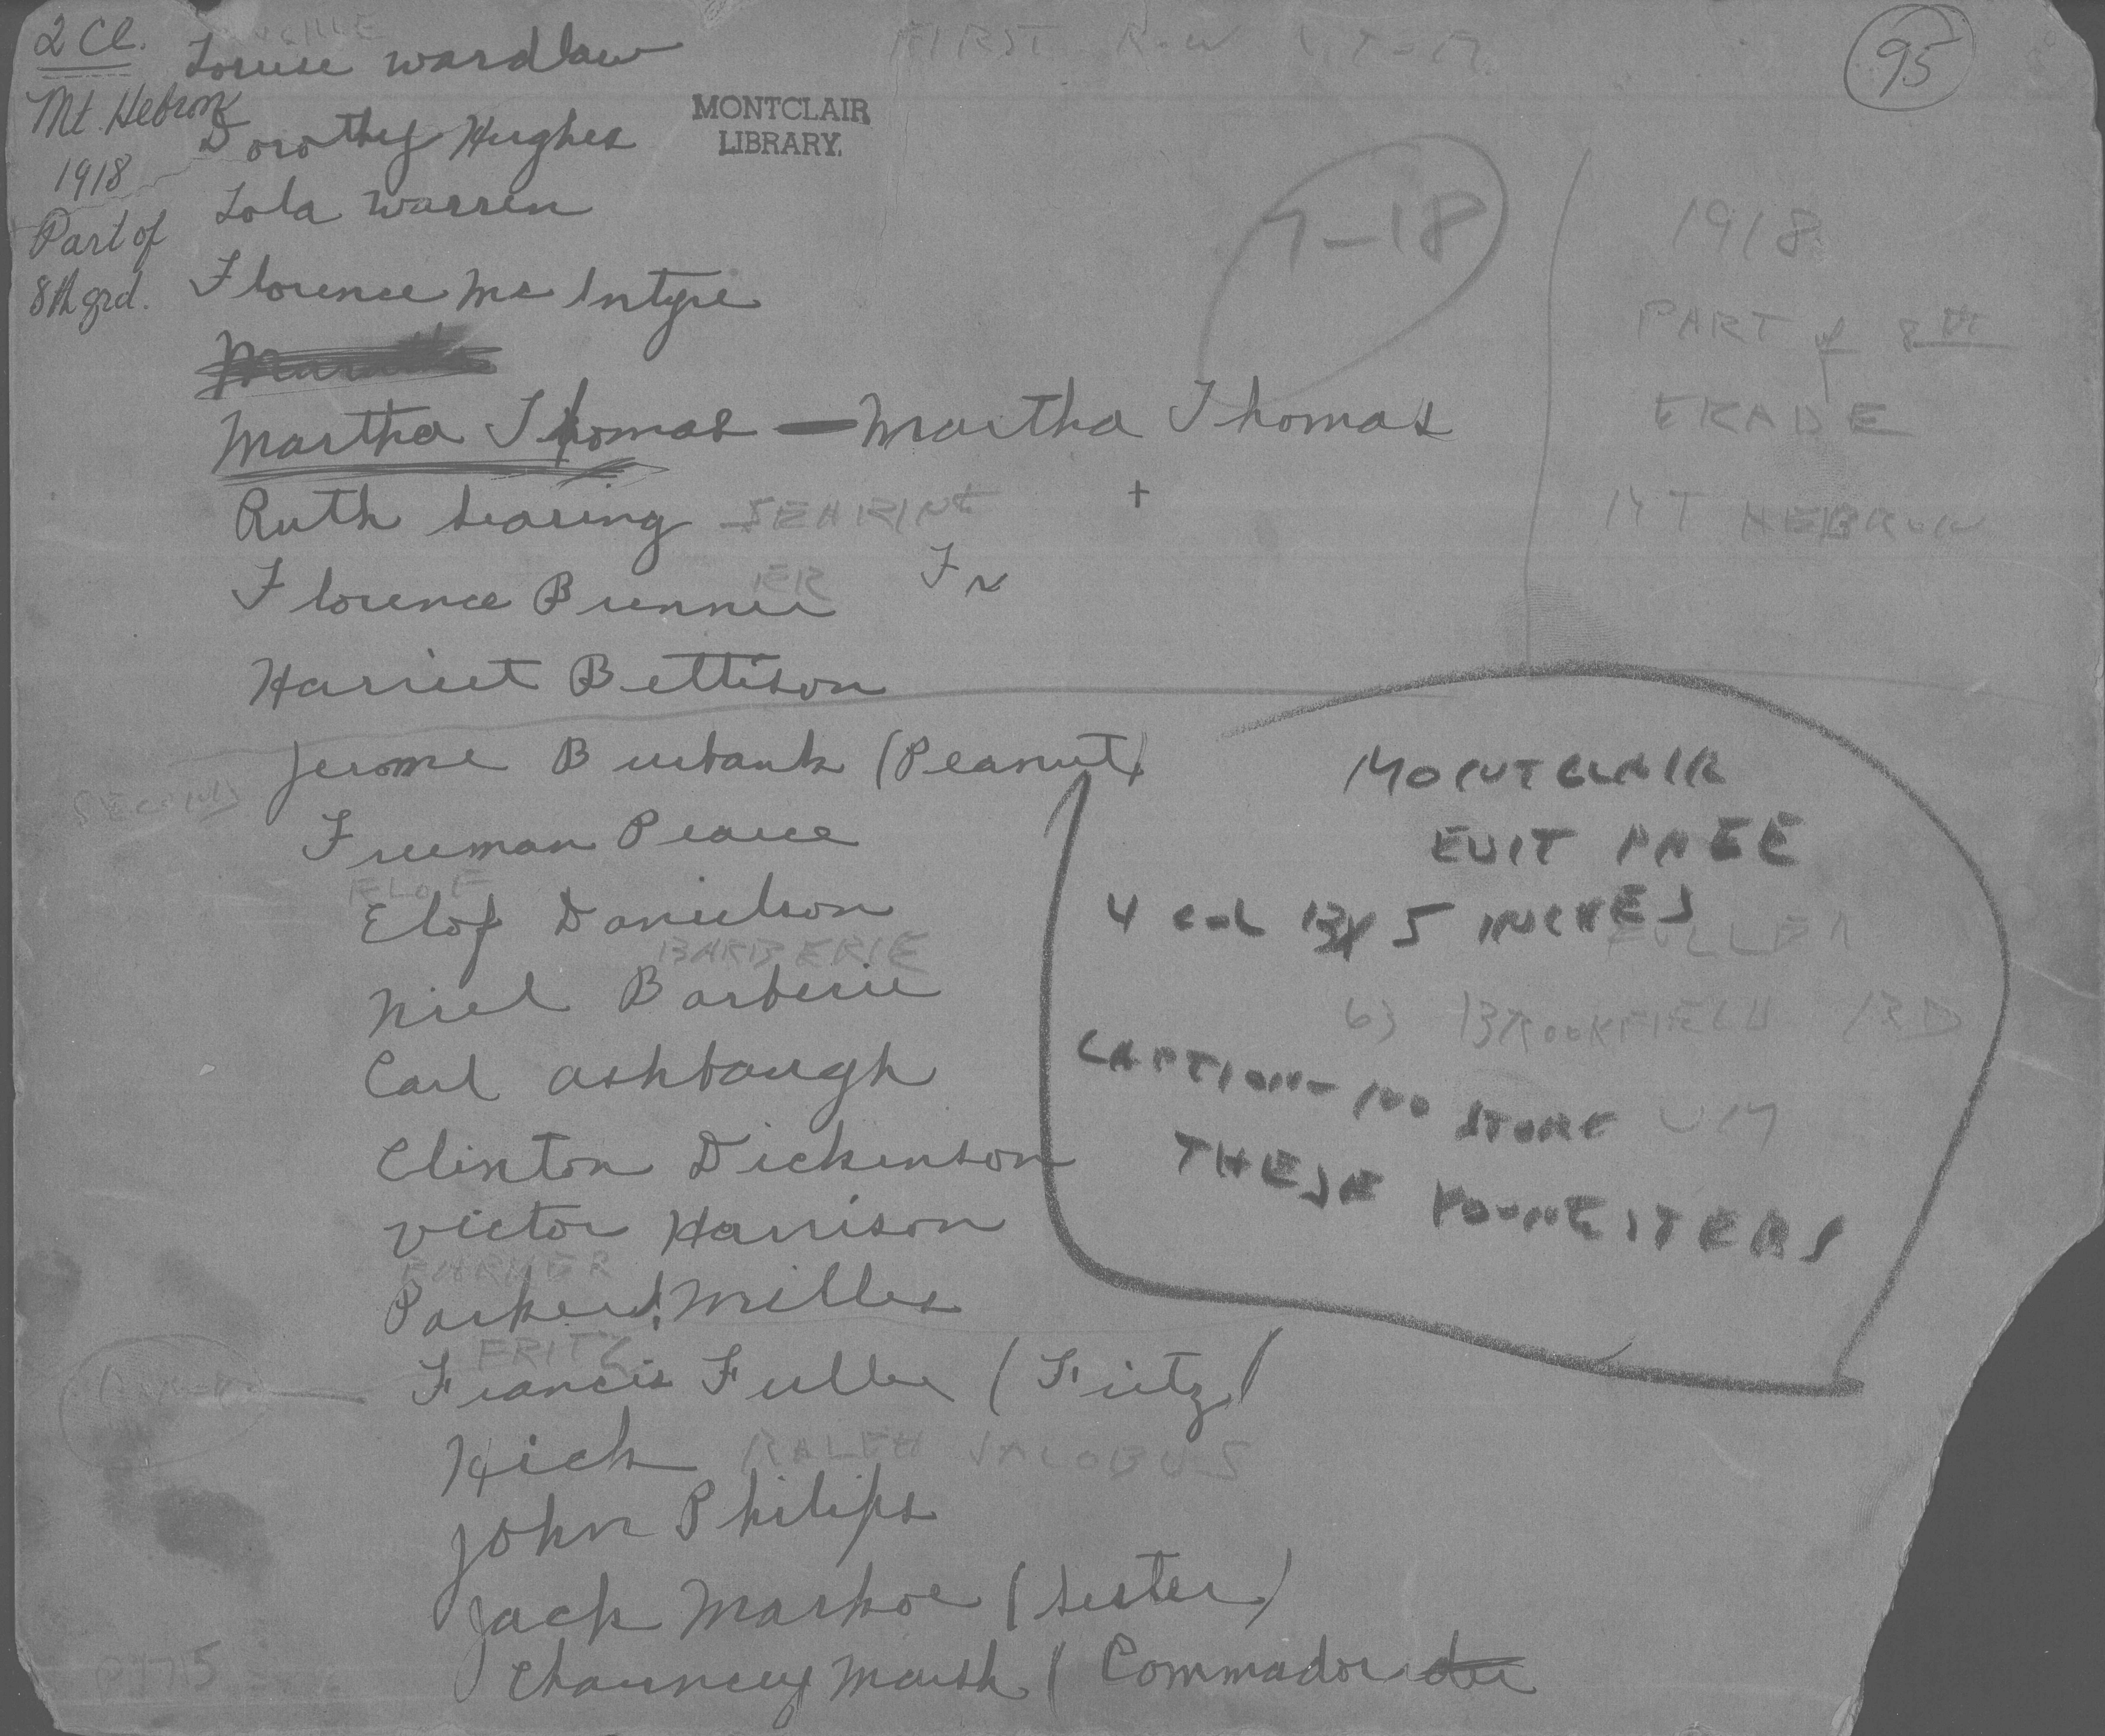 2 Cl.
Mt. Hebron
1918
Part of
8th grd.
FIRST ROW
95
MONTCLAIR
LIBRARY.
Louise Wardlaw
Dorothy Hughes
Lola Warren
Florence Mc Intyre
Martha Thomas — Martha Thomas
Ruth Searing SEARING
+
Florence Brunner ER
Harriet Bettison
Jerome Burbank (Peanut)
SECOND
Freeman Pearce
ELOF
Elof Danielson
BARBERIE
Niel Barberie
Carl Ashbaugh
Clinton Dickenson
Victor Harrison
PARKER
Parker Miller
FRITZ
Francis Fuller (Fritz)
Hick RALPH JACOBUS
John Philips
Jack Markoe (Sister)
Chauncey Marsh ( Commador
7-18
1918
PART of 8TH
GRADE
MT HEBRON
MONTCLAIR
EDIT PAGE
4 col BY 5 INCHES
FULLER
63 BROOKFIELD RD
UM
CAPTION- NO STORE
THESE YOUNGSTERS